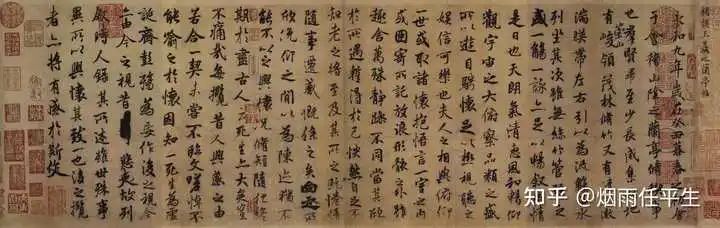 褚摸王羲之蘭亭帖
永和九年歲在癸丑暮春之初會
于會稽山陰之蘭亭脩稧事
也羣賢畢至少長咸集此地
有崇山峻領茂林脩竹又有清流激
湍暎帶左右引以為流觴曲水
列坐其次雖無絲竹管弦之
盛一觴一詠亦足以暢敘幽情
是日也天朗氣清惠風和暢仰
觀宇宙之大俯察品類之盛
所以遊目騁懷足以極視聽之
娛信可樂也夫人之相與俯仰
一世或取諸懷抱悟言一室之內
或因寄所託放浪形骸之外雖
趣舍萬殊靜躁不同當其欣
於所遇暫得於己怏然自足不
知老之將至及其所之既惓情
隨事遷感慨係之矣向之所
欣俛仰之間以為陳迹猶不
能不以之興懷況脩短隨化終
期於盡古人云死生亦大矣豈
不痛哉每攬昔人興感之由
若合一契未嘗不臨文嗟悼不
能喻之於懷固知一死生為虛
誕齊彭殤為妄作後之視今
亦由今之視昔悲夫故列
敘時人錄其所述雖世殊事
異所以興懷其致一也後之攬
者亦將有感於斯文
知乎 @烟雨任平生